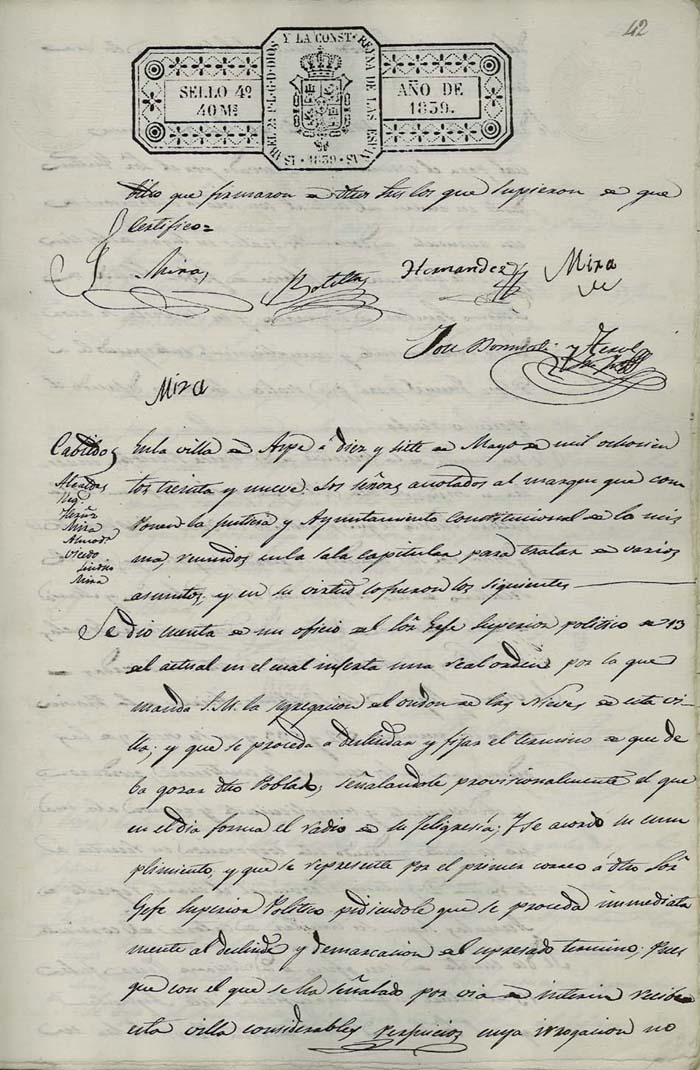 42
ISABEL 2ª P.L.G.D.DIOS Y LA CONST. REYNA DE LAS ESPAÑAS
SELLO 4º
40 Ms
AÑO DE
1839.
1839
que firmaron los que supieron de que
Certifico=
Mira
Botella
Hernandez
Mira
Jose
y
Mira
Cabildo
En la villa de Aspe á diez y siete de Mayo de mil ochocien
Alcaldes
tos treinta y nueve. Los señores anotados al margen que com
ponen la justicia y Ayuntamiento constitucional de la mis
Mira
Almodr
ma, reunidos en la sala capitular para tratar de varios
Sindico
Mira
asuntos, y en su virtud lo fueron los siguientes
Se dio cuenta de un oficio del Sor Gefe Superior politico de 13
del actual en el cual inserta una real orden por la que
manda S.M. la segregacion del ondon de las Nieves de esta vi
lla; y que se proceda á deslindar y fijar el termino de que de
ba gozar dho Poblado, señalandole provisionalmente el que
en el dia forma el radio de su feligresia; Y se acordo su cum
plimiento, y que se represente por el primer correo á dho Sor
Gefe Superior Politico pidiendole que se proceda immediata
mente al deslinde y demarcacion del espresado termino; Pues
que con el que se ha señalado por via de interin recibe
esta villa considerables perjuicios cuya irrogacion no